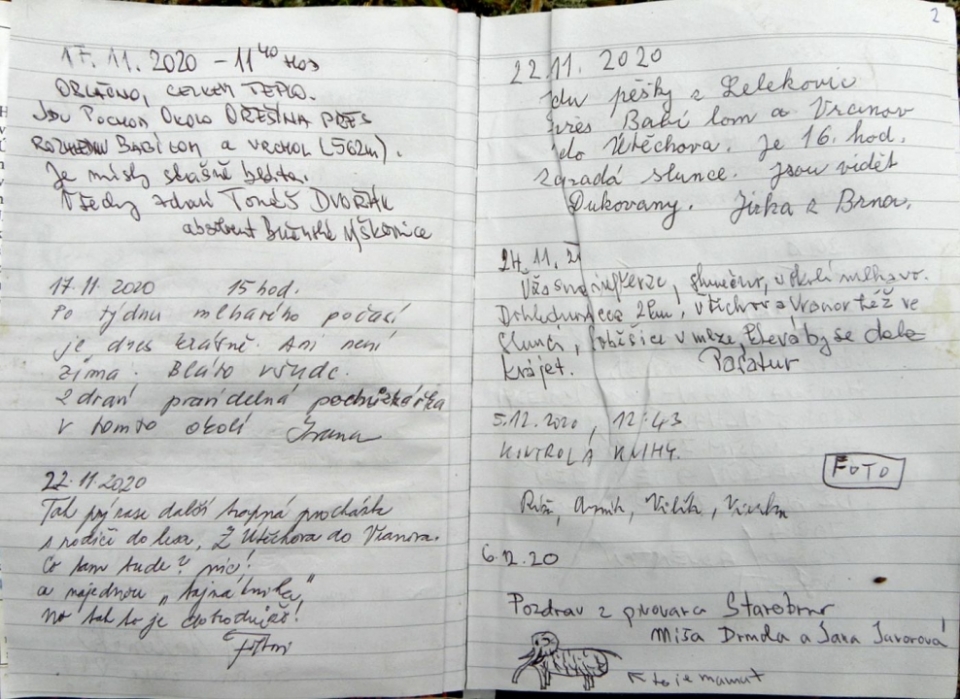 17.11.2020 - 11⁴⁰ HOD
OBLAČNO, CELKEM TEPLO.
JDU POCHOD OKOLO OŘEŠÍNA PŘES
BABÍ LOM A VRCHOL (562m).
Je místy strašně bláta.
Všechny zdraví Tomáš DVOŘÁK
absolvent
17.11.2020 15 hod.
Po týdnu mlhavého počasí
je dnes krásně. Ani není
zima. Bláto všude.
Zdraví pravidelná pochůzkářka
v tomto okolí Ivana
22.11.2020
Tak prý zase další trapná procházka
s rodiči do lesa, Z Útěchova do Vranova.
Co tam bude? nic!
a najednou „tajná knížka"
no tak to je dobrodružś!
2
22.11. 2020
Jdu pěšky z Lelekovic
přes Babí lom a Vranov
do Útěchova. Je 16. hod.
Zapadá slunce. Jsou vidět
Dukovany. Jirka z Brna.
24.11.2
Úžasná inverze, slunečno, v okolí mlhavo.
Dohlednost cca 2km, Útěchov a Vranov též ve
slunci, Soběšice v mlze, která by se dala
krájet.
5.12.2020, 12:43
KONTROLA KNIHY.
FOTO
6.12.20
Pozdrav z pivovara Starobrno
Míša Drmola a Jana Javorová
to je mamut